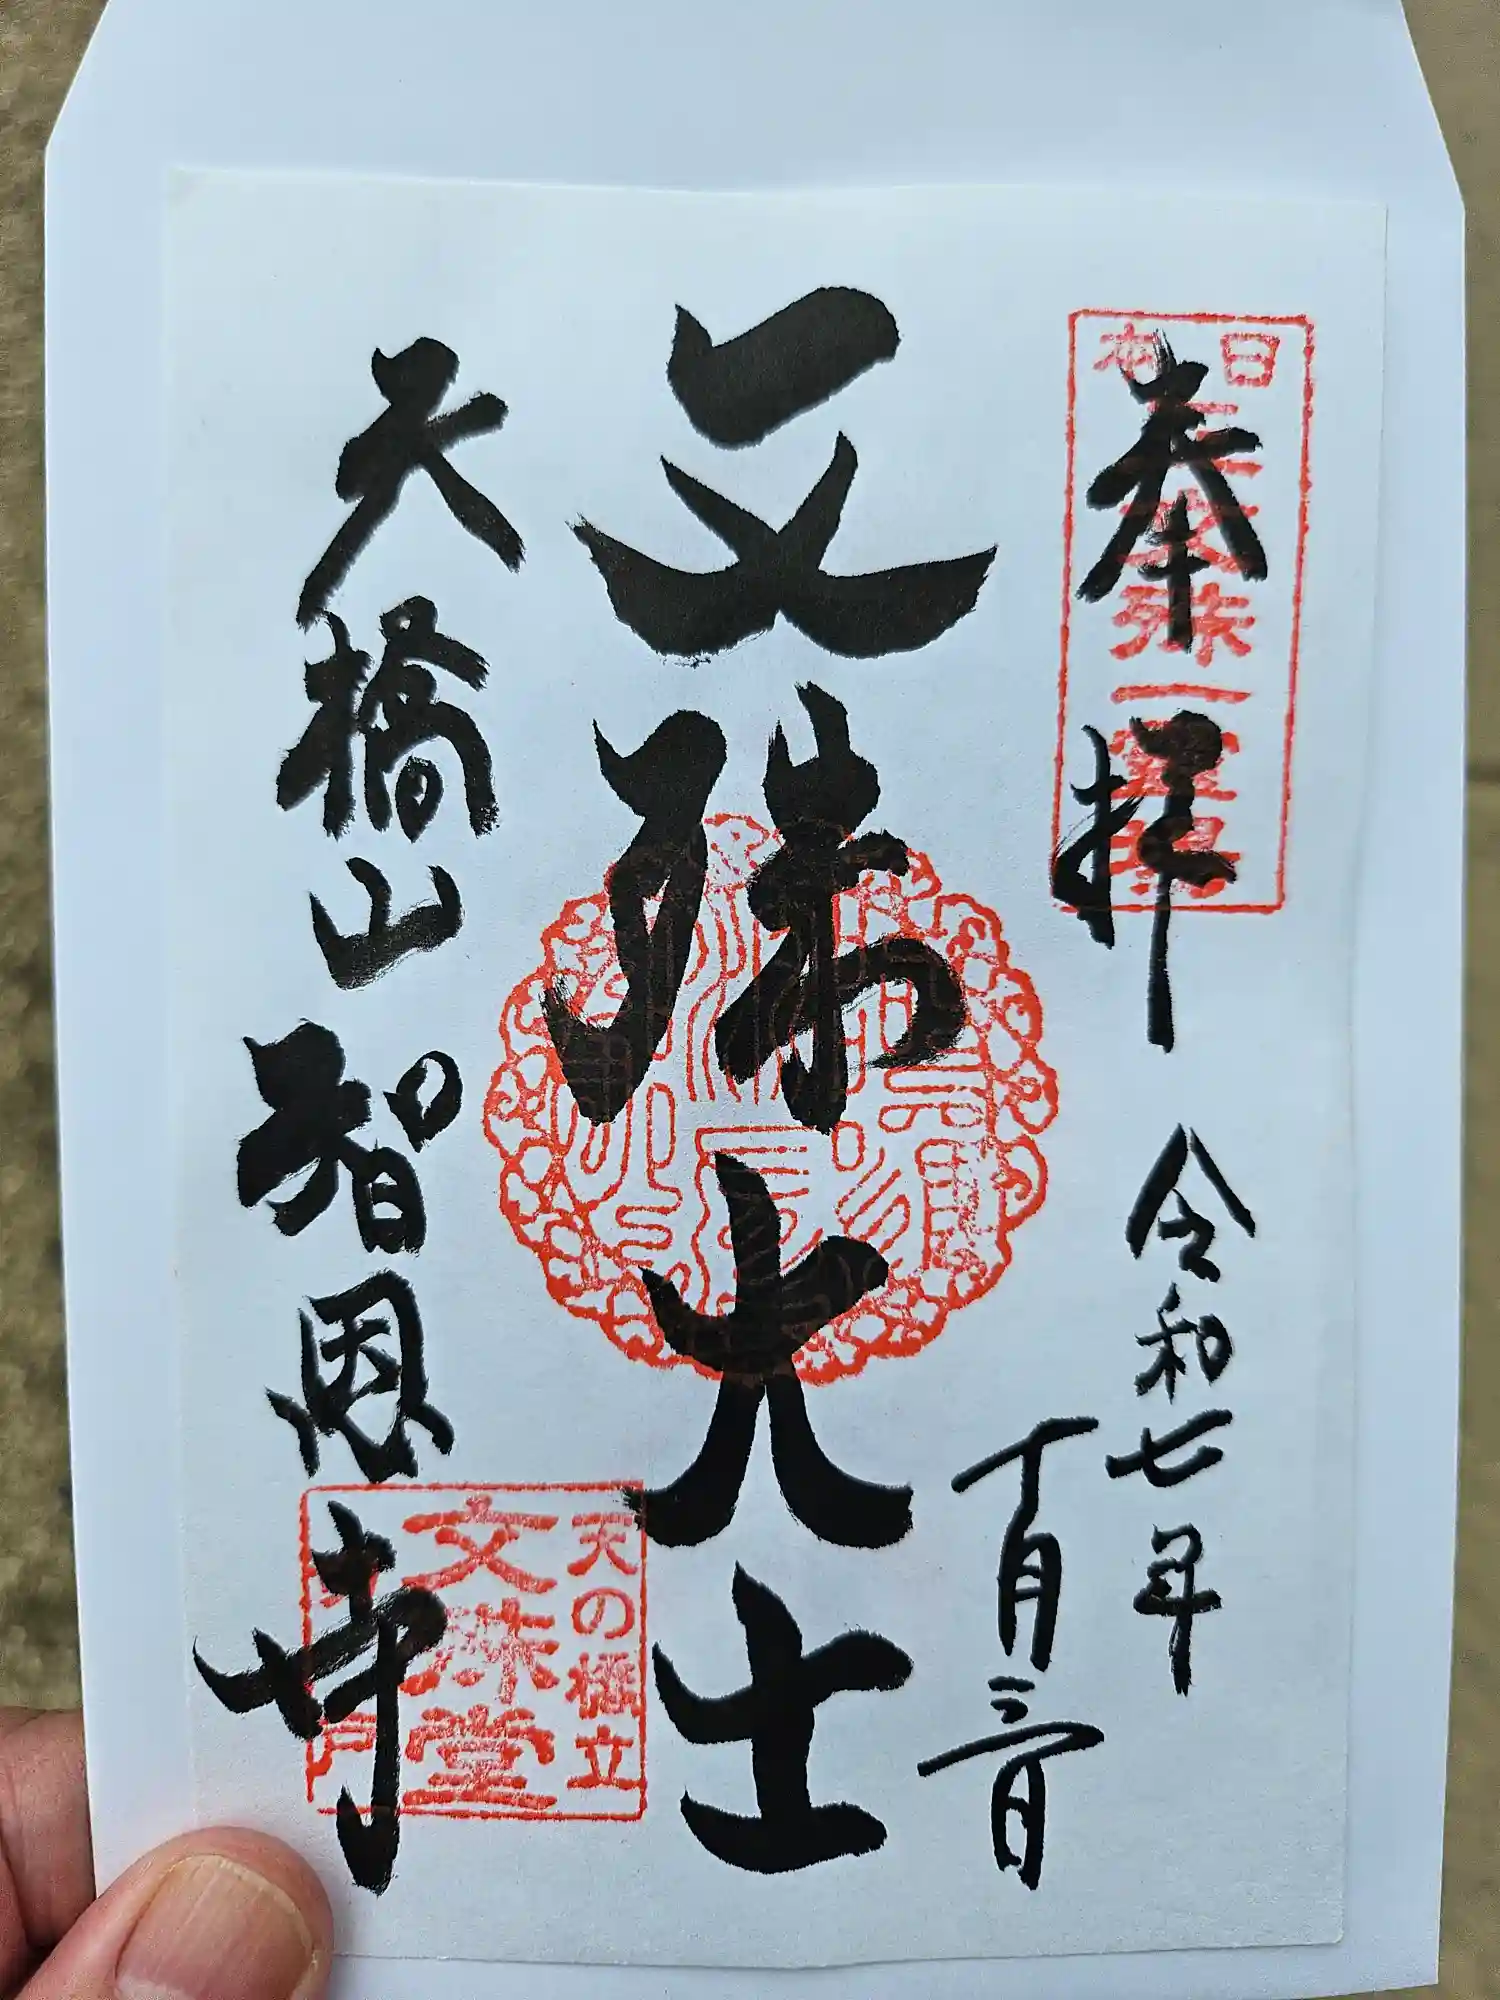 奉拝
令和七年
月三日
日本三文殊一霊場
文殊大士
天橋山智恩寺
天の橋立
文殊堂
戸